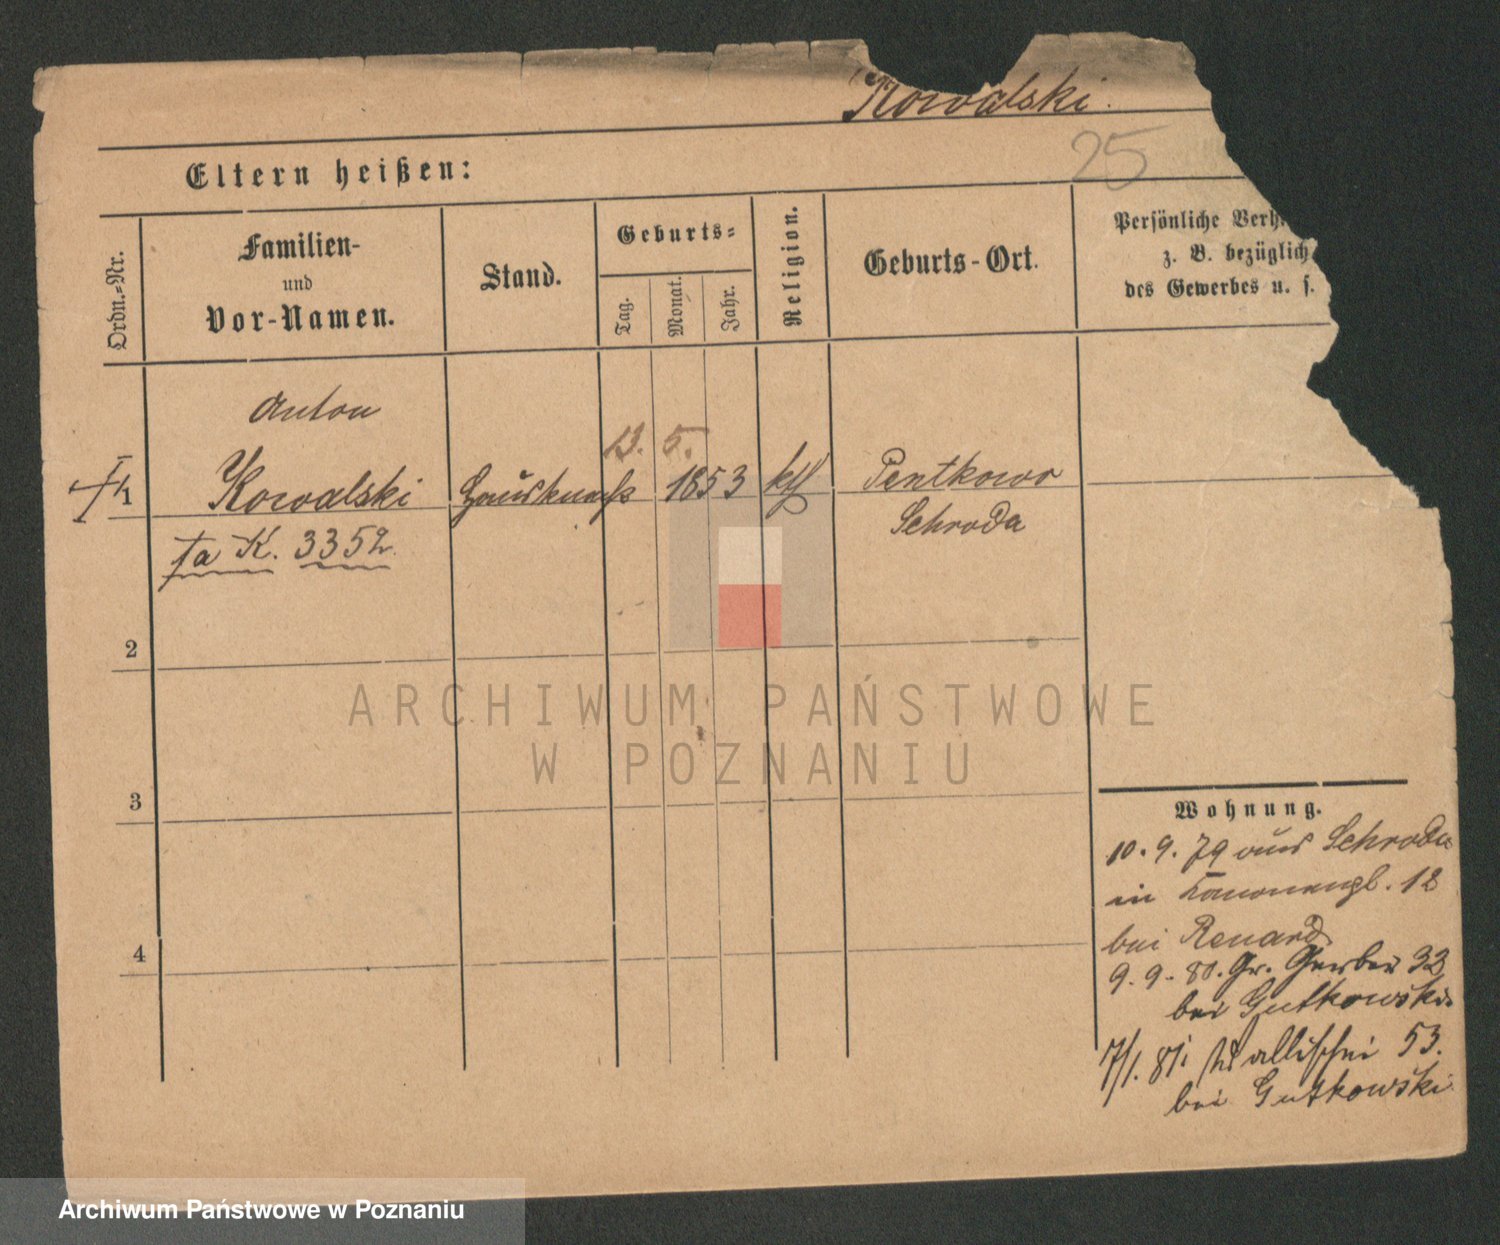 Kowalski.
25
Eltern heißen:
Ordn.-Nr.
Familien-
und
Vor-Namen.
Stand.
Geburts-
Tag.
Monat.
Jahr.
Religion.
Geburts-Ort.
Persönliche Verh
z. B. bezüglich
des Gewerbes u. s.
Anton
13. 5.
1 Kowalski Hausknecht 1853 kth Pentkowo
Schroda
K. 3352
2
3
4
Wohnung.
10. 9. 79 aus Schroda
in Kanonengl. 12
bei Renard
9. 9. 80. Gr. Gerber 32
bei Gutkowski
7/1. 81 Wallischei 53.
bei Gutkowski
ARCHIWUM PAŃSTWOWE
W POZNANIU
Archiwum Państwowe w Poznaniu